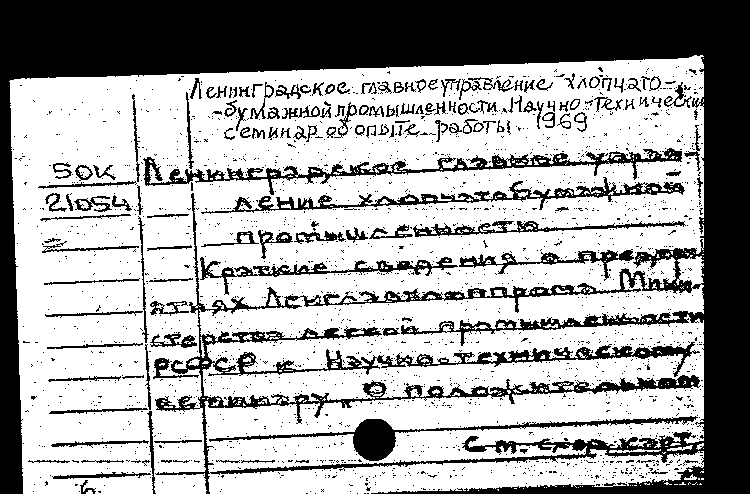 Ленинградское главное управление хлопчато-
-бумажной промышленности. Научно-технический
семинар об опыте работы. 1969
50к Ленинградское главное управ-
21054 ление хлопчатобумажной
промышленностью
Краткие сведения о предпри-
ятиях Ленглавхлоппрома Мини-
стерства легкой промышленности
РСФСР к Научно-техническому
семинару „О положительном
См. след. карт.